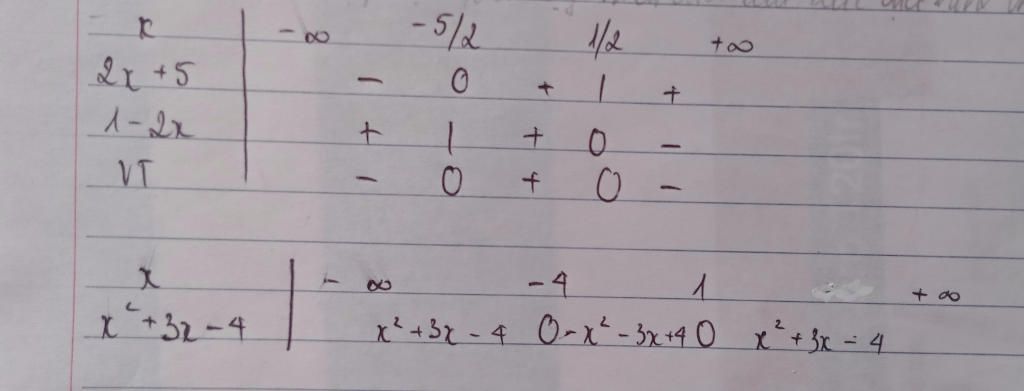 x | -∞ -5/2 1/2 +∞
2x+5 | - 0 + | +
1-2x | + | + 0 -
VT | - 0 + 0 -
x | -∞ -4 1 +∞
x²+3x-4 | x²+3x-4 0 -x²-3x+4 0 x²+3x-4